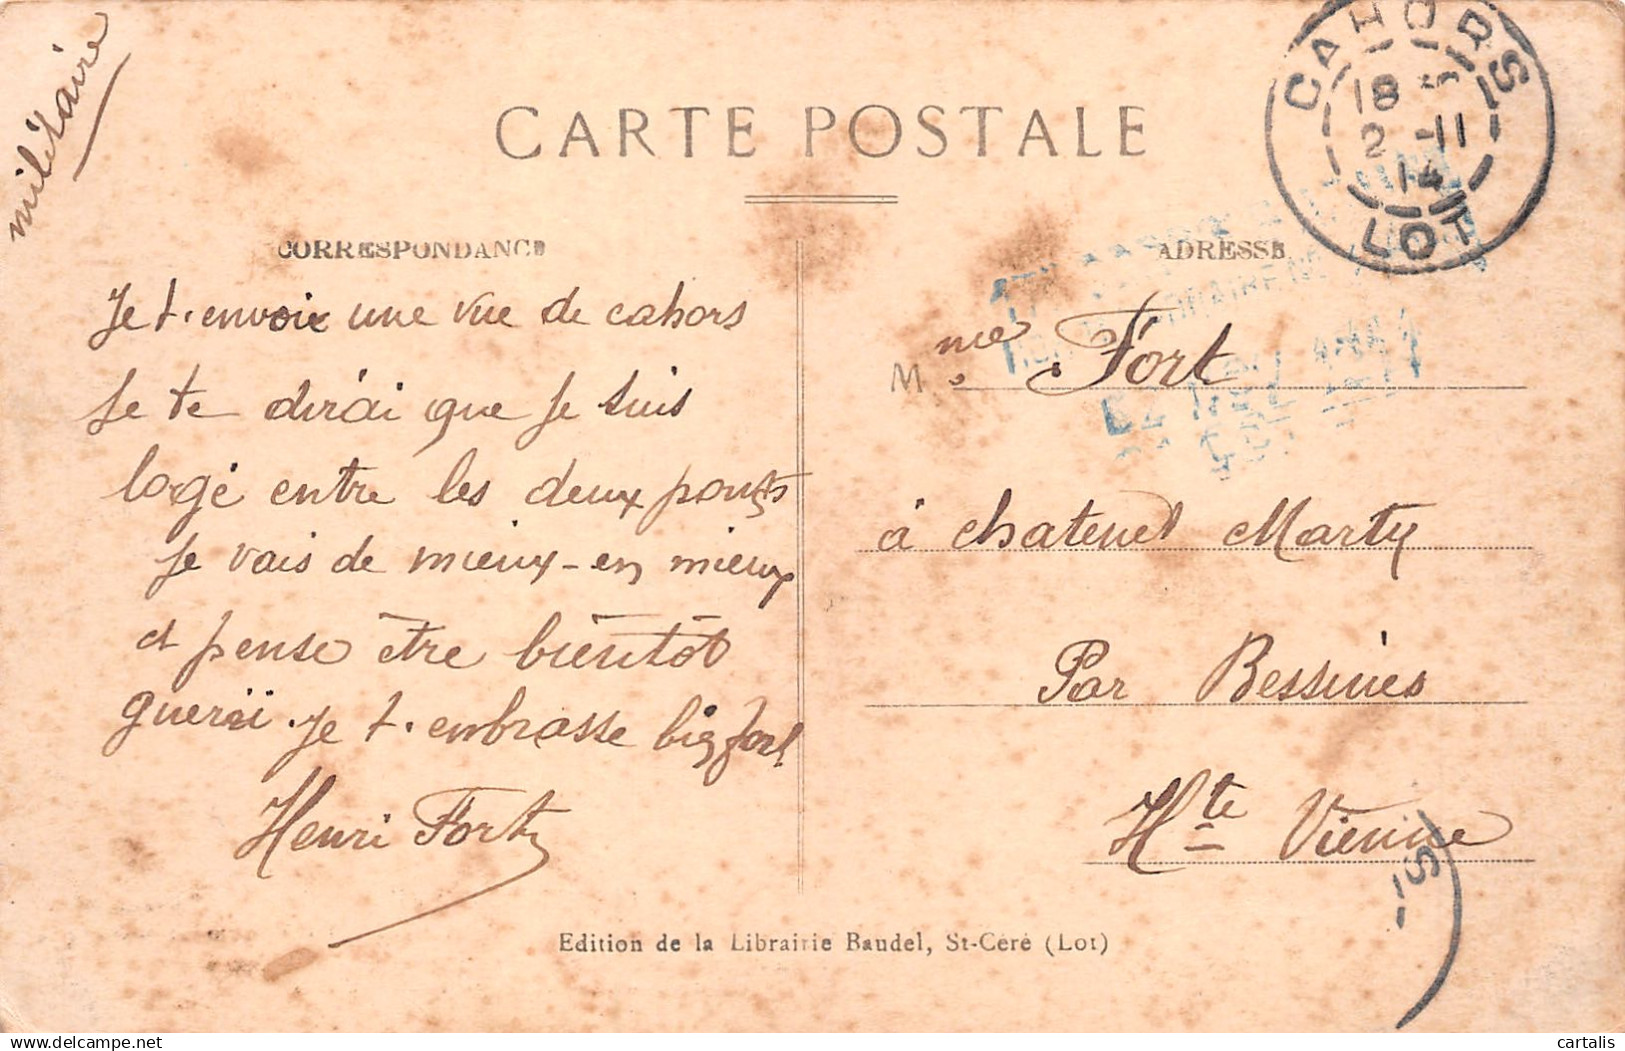 militaire
CARTE POSTALE
CAHORS
18 5
2 -11
14
LOT
CORRESPONDANCE
Je t. envoie une vue de cahors
Je te dirai que Je suis
logé entre les deux ponts
Je vais de mieux-en mieux
et pense être bientôt
guerii. Je t. enbrasse bien fort
Henri Fort
ADRESSE
Mme. Fort
à chatenet Marty
Par Bessines
Hte Vienne
Edition de la Librairie Baudel, St-Céré (Lot)
cartalis